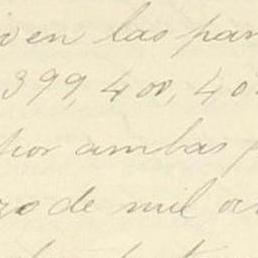 en las par
399, 400, 40
por ambas
ro de mil o